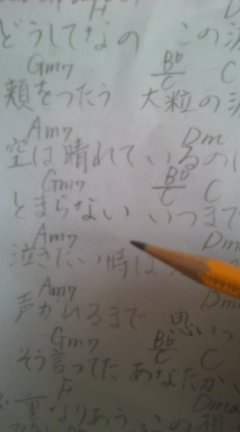 F D
どうしてなの この涙
Gm7 B♭/C C
頬をつたう 大粒の
Am7 Dm
空は晴れているのに
Gm7 B♭/C C
とまらない いつまで
Am7 Dm
泣きたい時は
Am7 Dm
声かれるまで 思いっ
Gm7 B♭/C C
そう言ってた あなたが
F Dm
重なりあう この